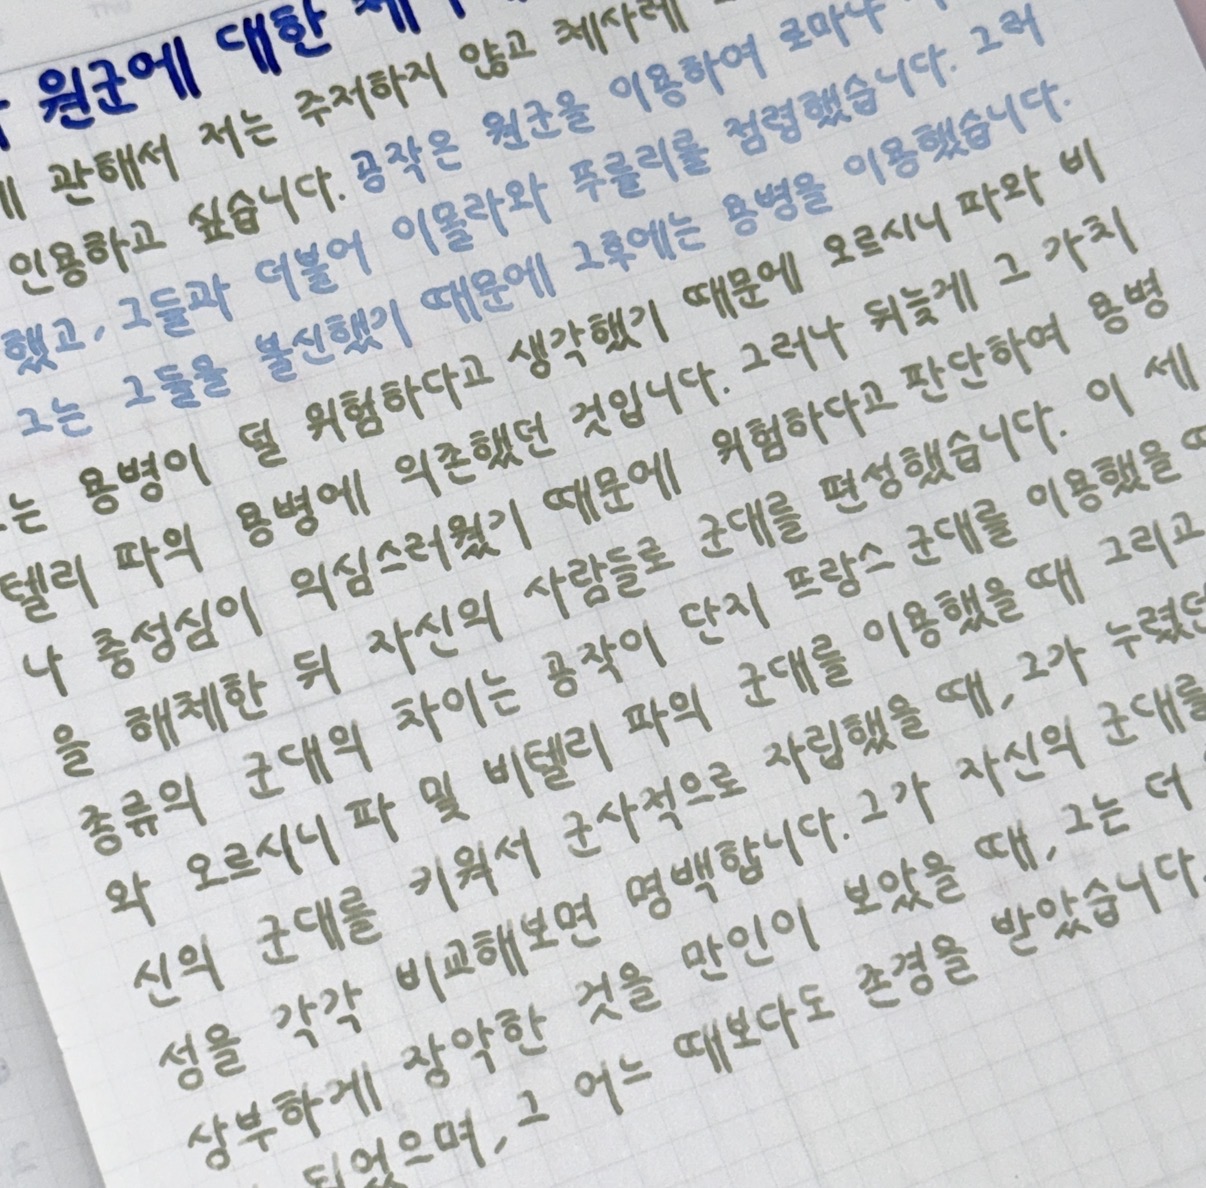 원군에 대한
관해서 저는 주저하지 않고 체사레
인용하고 싶습니다. 공작은 원군을 이용하여 로마냐
했고, 그들과 더불어 이몰라와 푸를리를 점령했습니다. 그러
그는 그들을 불신했기 때문에 그후에는 용병을 이용했습니다.
는 용병이 덜 위험하다고 생각했기 때문에 오르시니 파와 비
텔리 파의 용병에 의존했던 것입니다. 그러나 뒤늦게 그 가치
나 충성심이 의심스러웠기 때문에 위험하다고 판단하여 용병
을 해체한 뒤 자신의 사람들로 군대를 편성했습니다. 이 세
종류의 군대의 차이는 공작이 단지 프랑스 군대를 이용했을
와 오르시니 파 및 비텔리 파의 군대를 이용했을 때 그리고
신의 군대를 키워서 군사적으로 자립했을 때, 그가 누렸던
성을 각각 비교해보면 명백합니다. 그가 자신의 군대를
상부하게 장악한 것을 만인이 보았을 때, 그는 더
되었으며, 그 어느 때보다도 존경을 받았습니다.